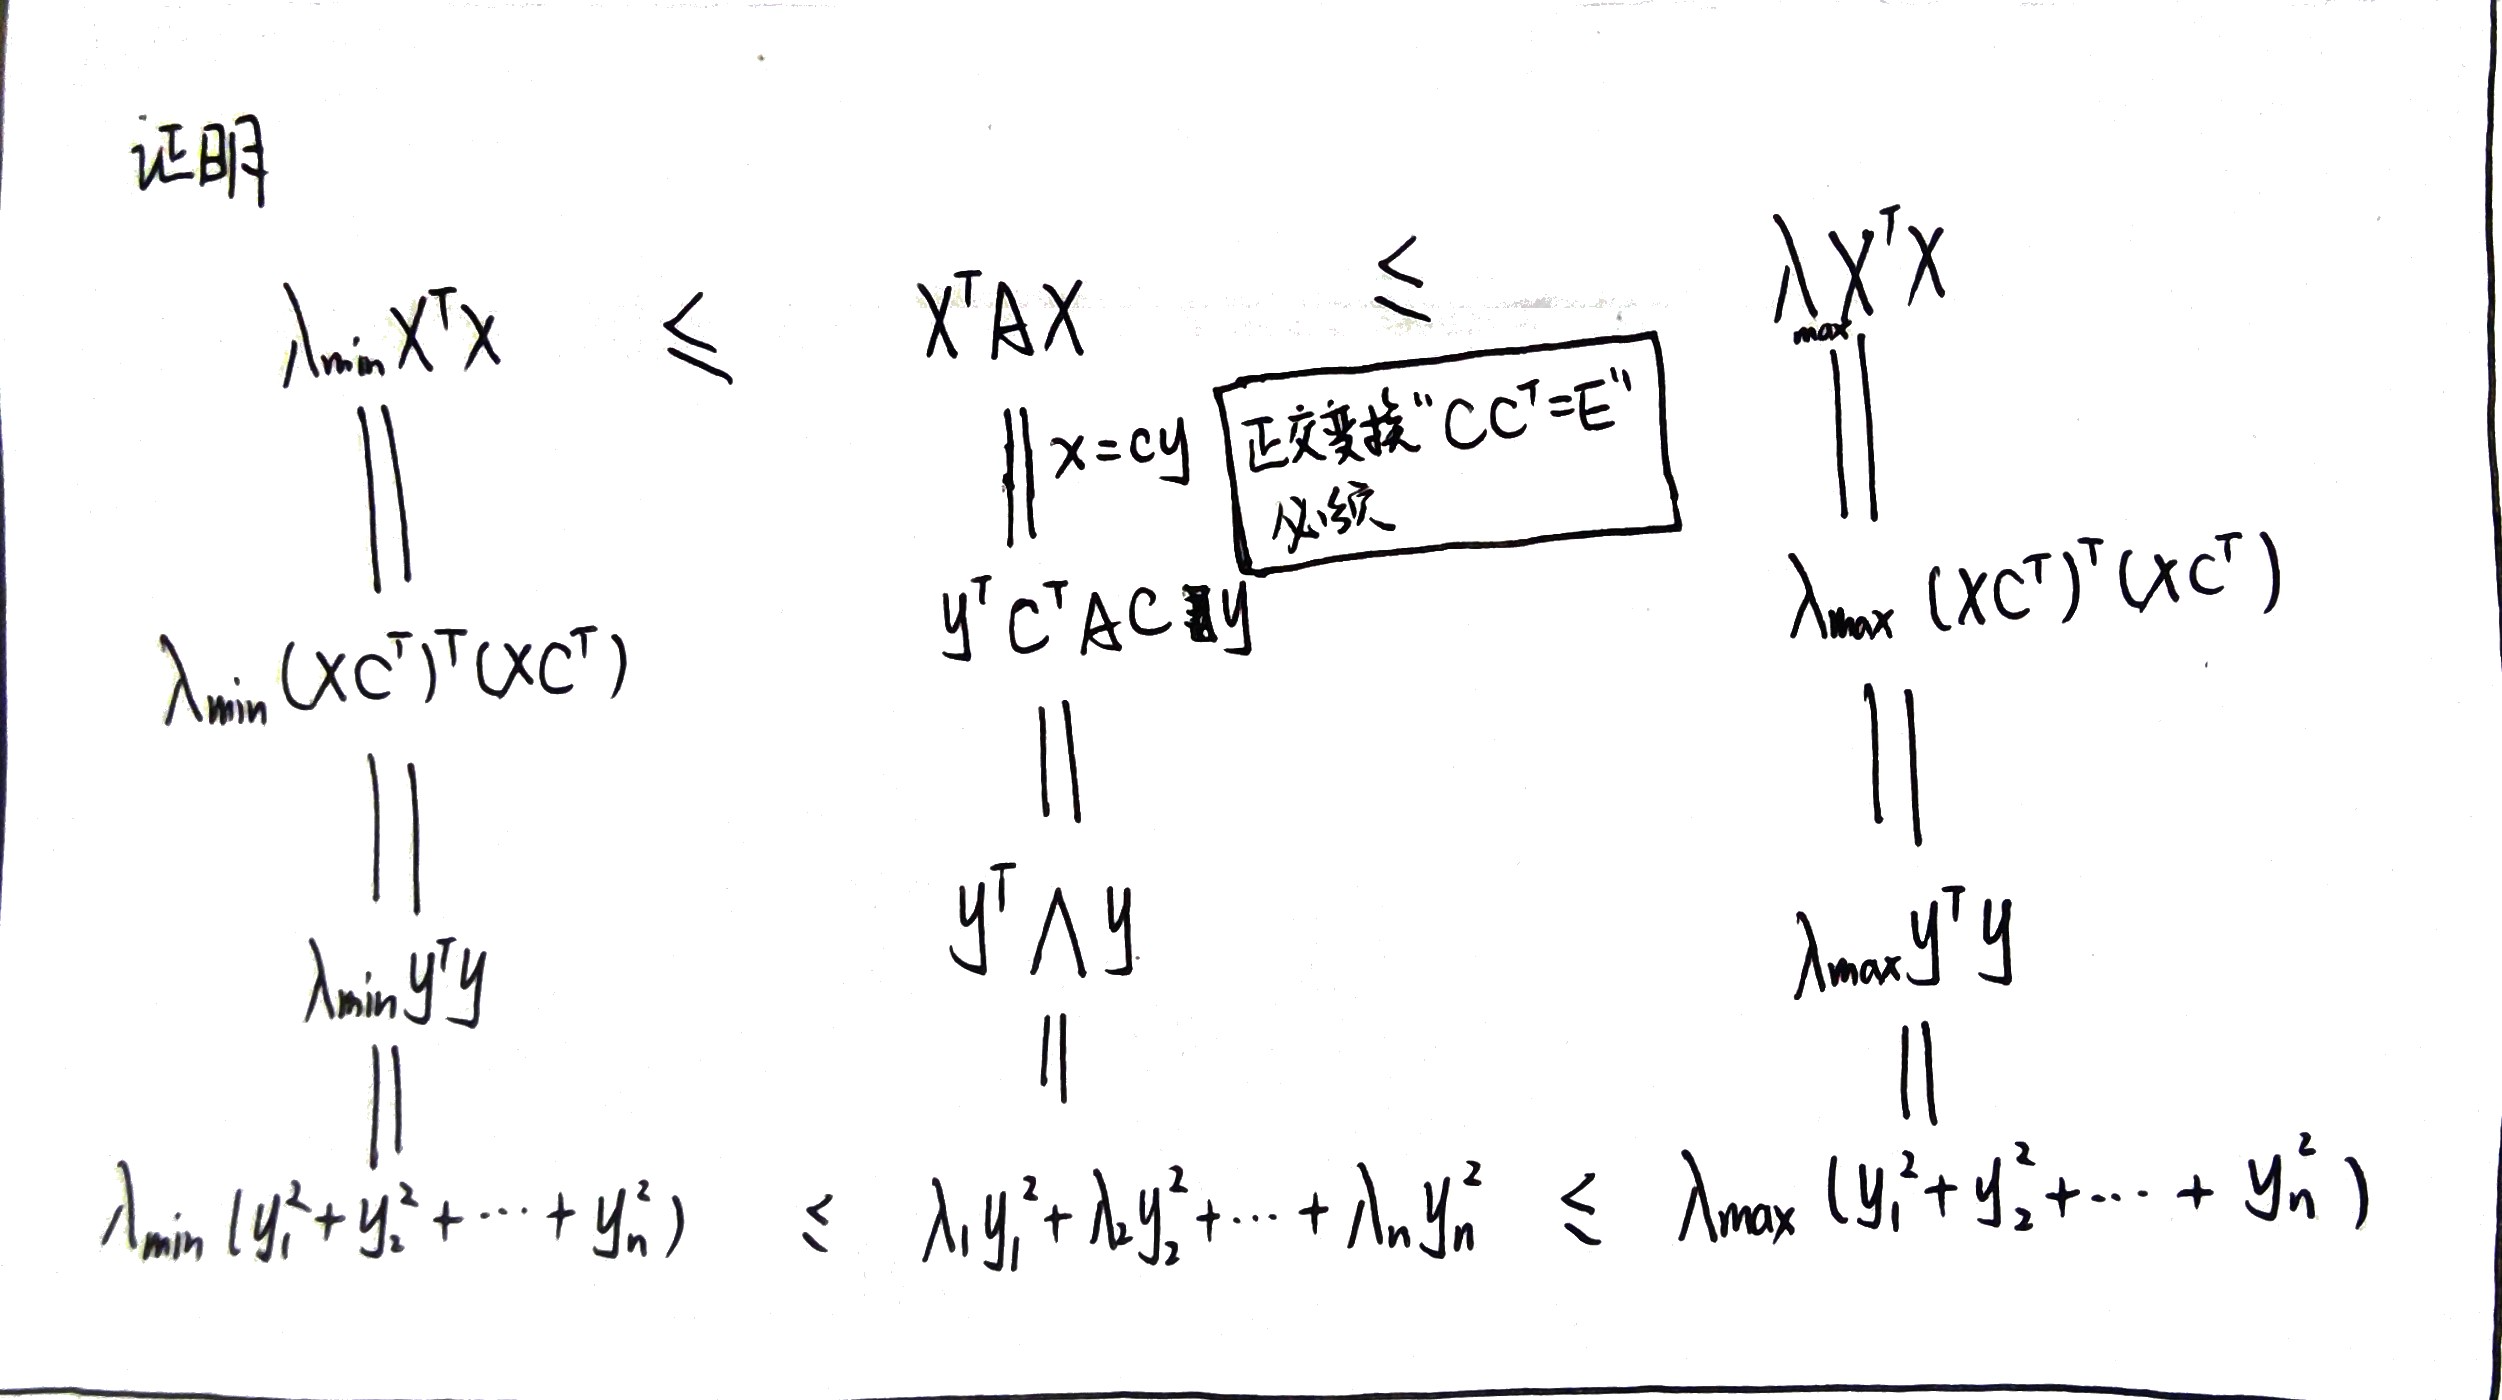 证明
λmin XᵀX ≤ XᵀAX ≤ λmax XᵀX
|| || x=cy 正交变换“CCᵀ=E” ||
必须
λmin (XCᵀ)ᵀ(XCᵀ) yᵀCᵀACy λmax (XCᵀ)ᵀ(XCᵀ)
|| || ||
λmin yᵀy yᵀΛy λmax yᵀy
|| || ||
λmin (y₁²+y₂²+⋯+yₙ²) ≤ λ₁y₁²+λ₂y₂²+⋯+λₙyₙ² ≤ λmax (y₁²+y₂²+⋯+yₙ²)